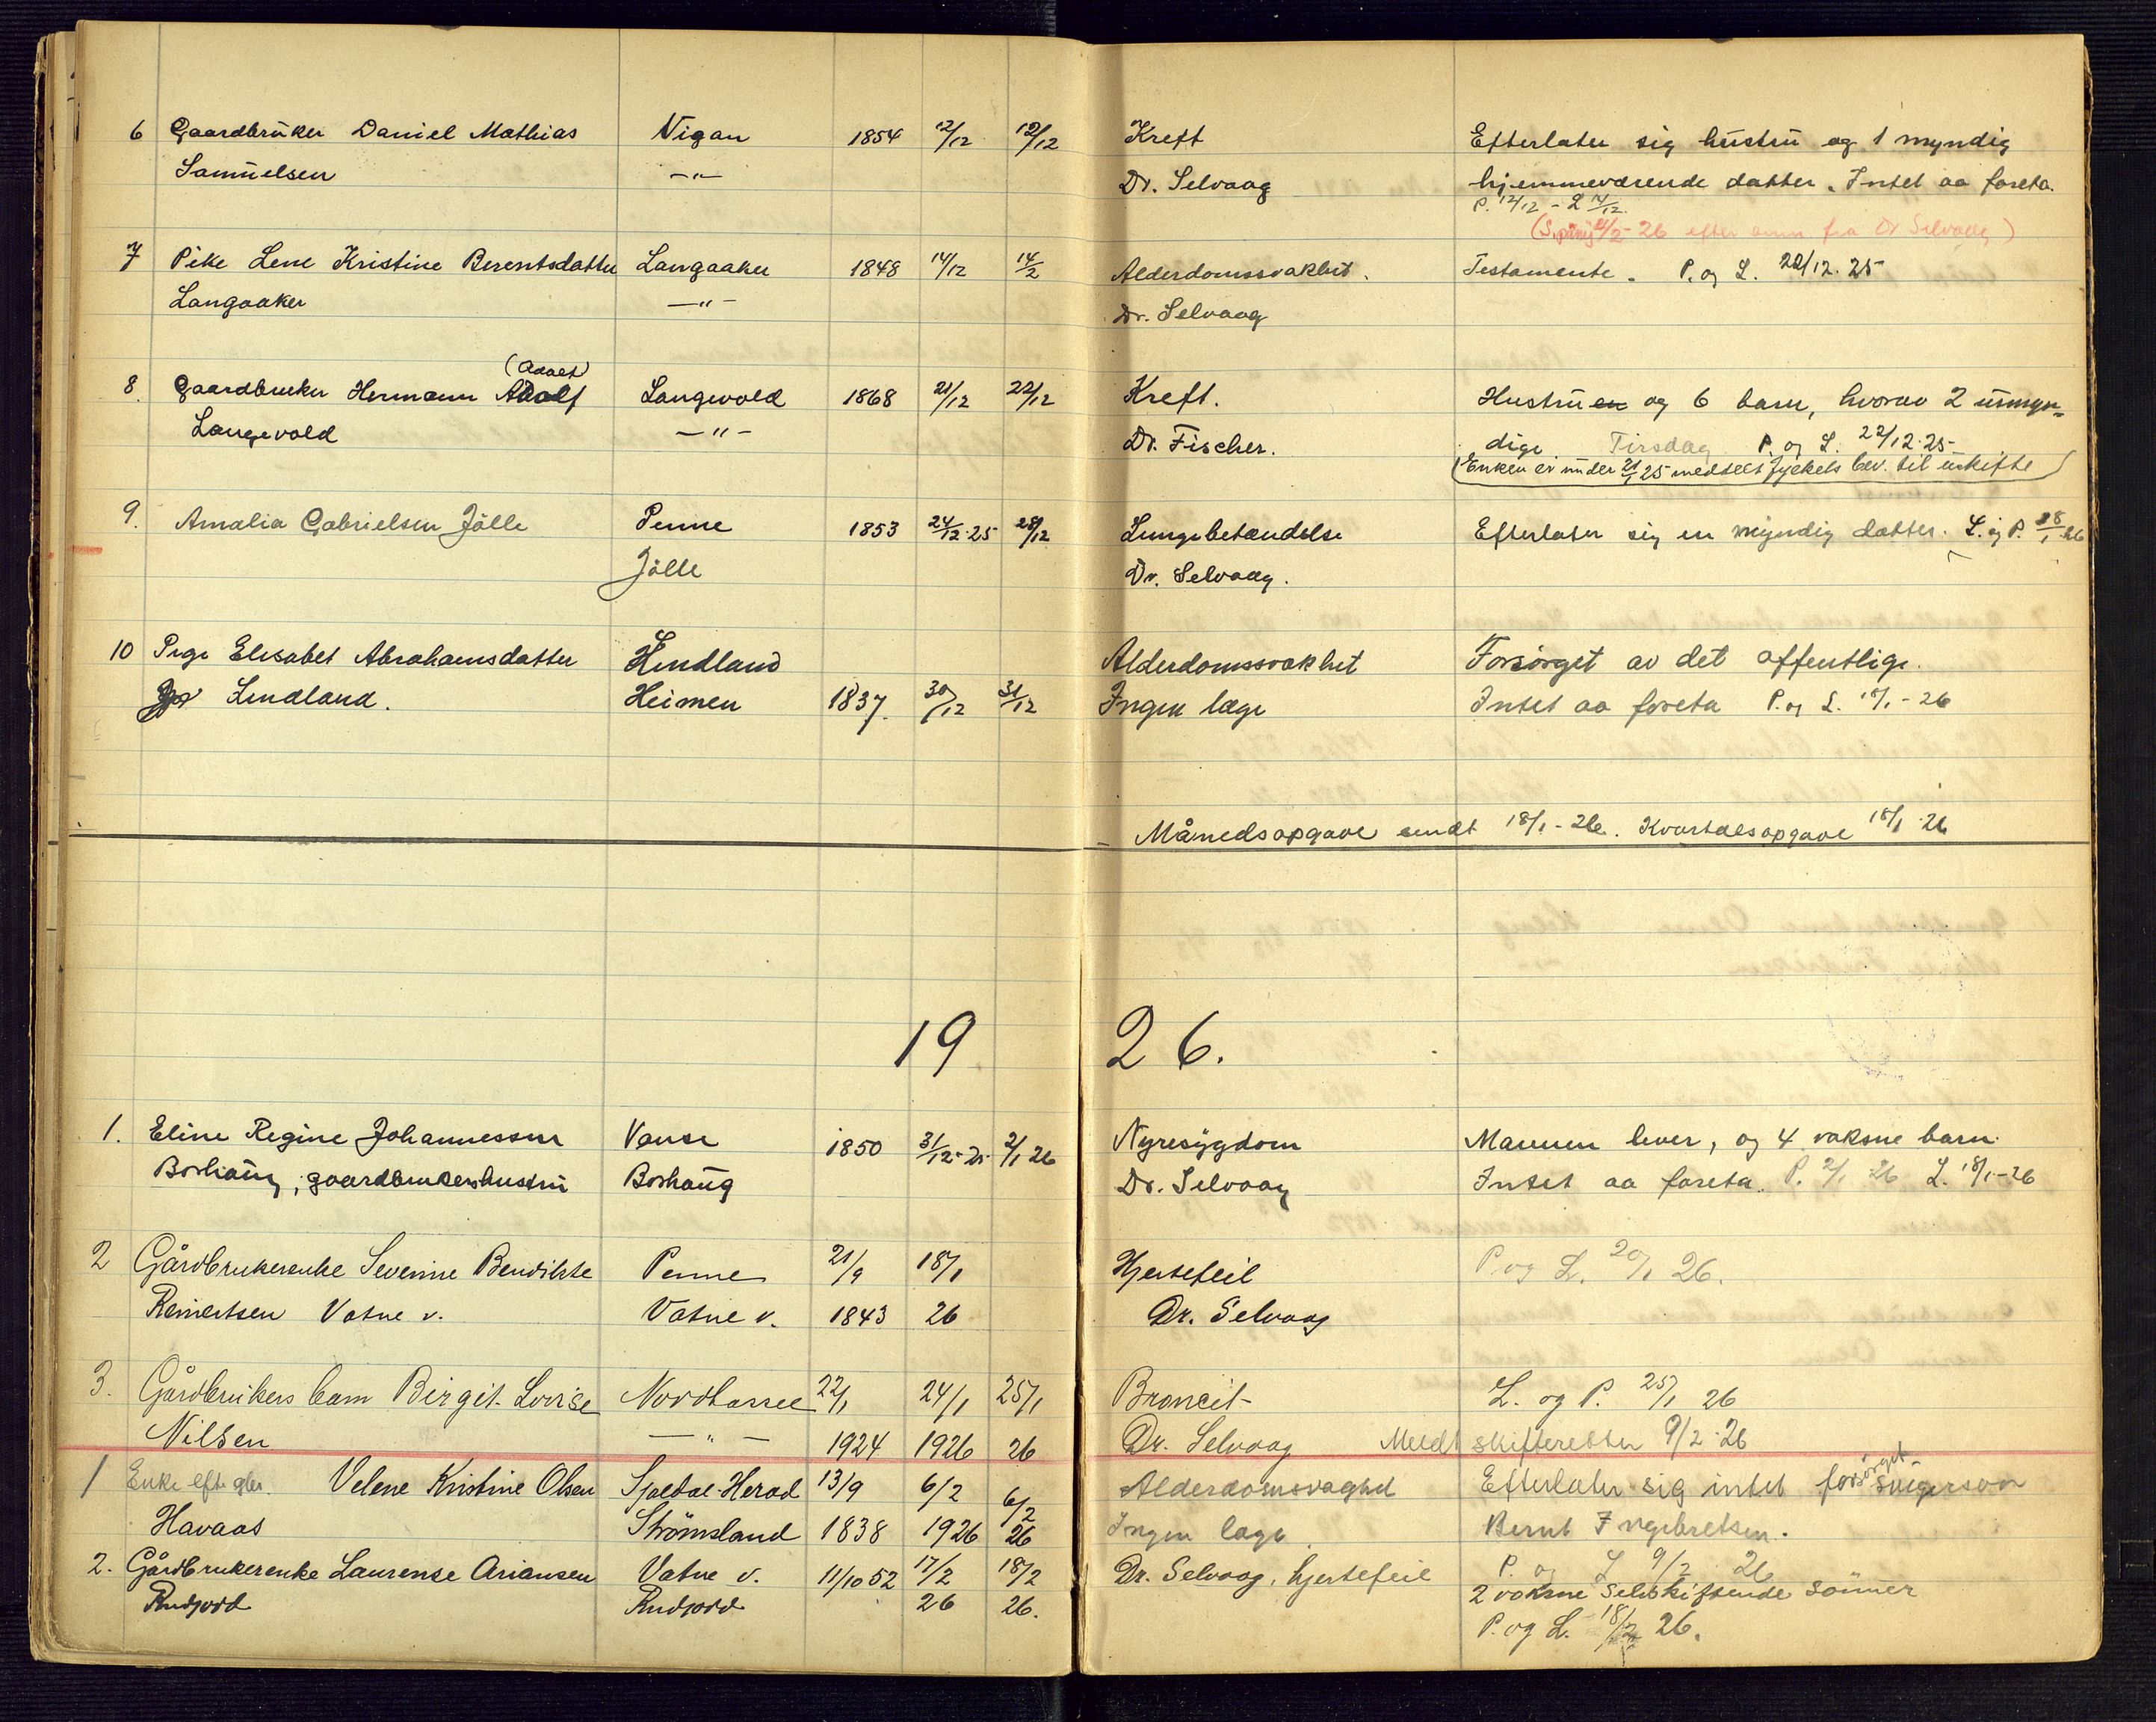 6 Gaardbrüker Daniel Mathias Vigan 1854 12/12 12/12 Kreft Efterlater sig hüstrü og 1 myndig
Samüelsen —"— Dr. Selvaag hjemmeværende datter. Intet aa foreta.
P. 12/12 - L 14/12.
26 efter anm fra Dr Selvaag)
7 Pike Lene Kristine Berentsdatter Langaaker 1848 14/12 14/2 Alderdomssvakhet. Testamente. P. og L. 22/12.25
Langaaker —"— Dr. Selvaag
(Adolf)
8. Gaardbruker Hermann Adolf Langevold 1868 21/12 22/12 Kreft. Hustrüen og 6 barn, hvorav 2 ümyn-
Langevold —"— Dr. Fischer. dige Tirsdag P. og L. 22/12.25
(Enken er ünder 21/1 25 meddelt fylkets bev. til üskifte)
9. Amalia Gabrielsen Jölle Penne 1853 24/12.25 28/12 Lungebetændelse Efterlater sig en myndig datter. L. og P. 18/1.26
Jölle Dr. Selvaag.
10 Pige Elisabet Abrahamsdatter Lindland Alderdomssvakhet Forsörget av det offentlige.
Lindland. Heimen 1837. 30/12 31/12 Ingen læge Intet aa foreta P. og L. 18/1-26
Månedsopgave sendt 18/1-26. Kvartalsopgave 18/1 26
1926.
1. Eline Regine Johannessen Vanse 1850 31/12-25 2/1 26 Nyresygdom Mannen lever, og 4 voksne barn.
Borhaüg, gaardbrukerhustrü Borhaüg Dr. Selvaag Intet aa foreta. P. 2/1 26 L. 18/1-26
2 Gårdbrukerenke Severine Bendikte Penne 21/9 18/1 Hjertefeil P. og L. 20/1 26.
Reinertsen Vatne v. Vatne v. 1843 26 Dr. Selvaag
3. Gårdbrukers barn Birgit Lovise Nordhassel 22/1 24/1 25/1 Broncit L. og P. 25/1 26
Nilsen —"— 1924 1926 26 Dr. Selvaag Meldt skifteretten 9/2.26
1 Enke efter gbr. Velene Kristine Olsen Sjøldal-Herad 13/9 6/2 6/2 Alderdomsvaghet Efterlater sig intet forsörget svigersön
Havaas Strömsland 1838 1926 26 Ingen læge. Bernt Ingebretsen.
P. og L 9/2 26
2. Gårdbrukerenke Laurense Ariansen Vatne v. 11/10 52 17/2 18/2 Dr. Selvaag, hjertefeil 2 voksne selvskiftende sönner
Rudjord Rudjord 26 26. P. og L. 18/2 26.